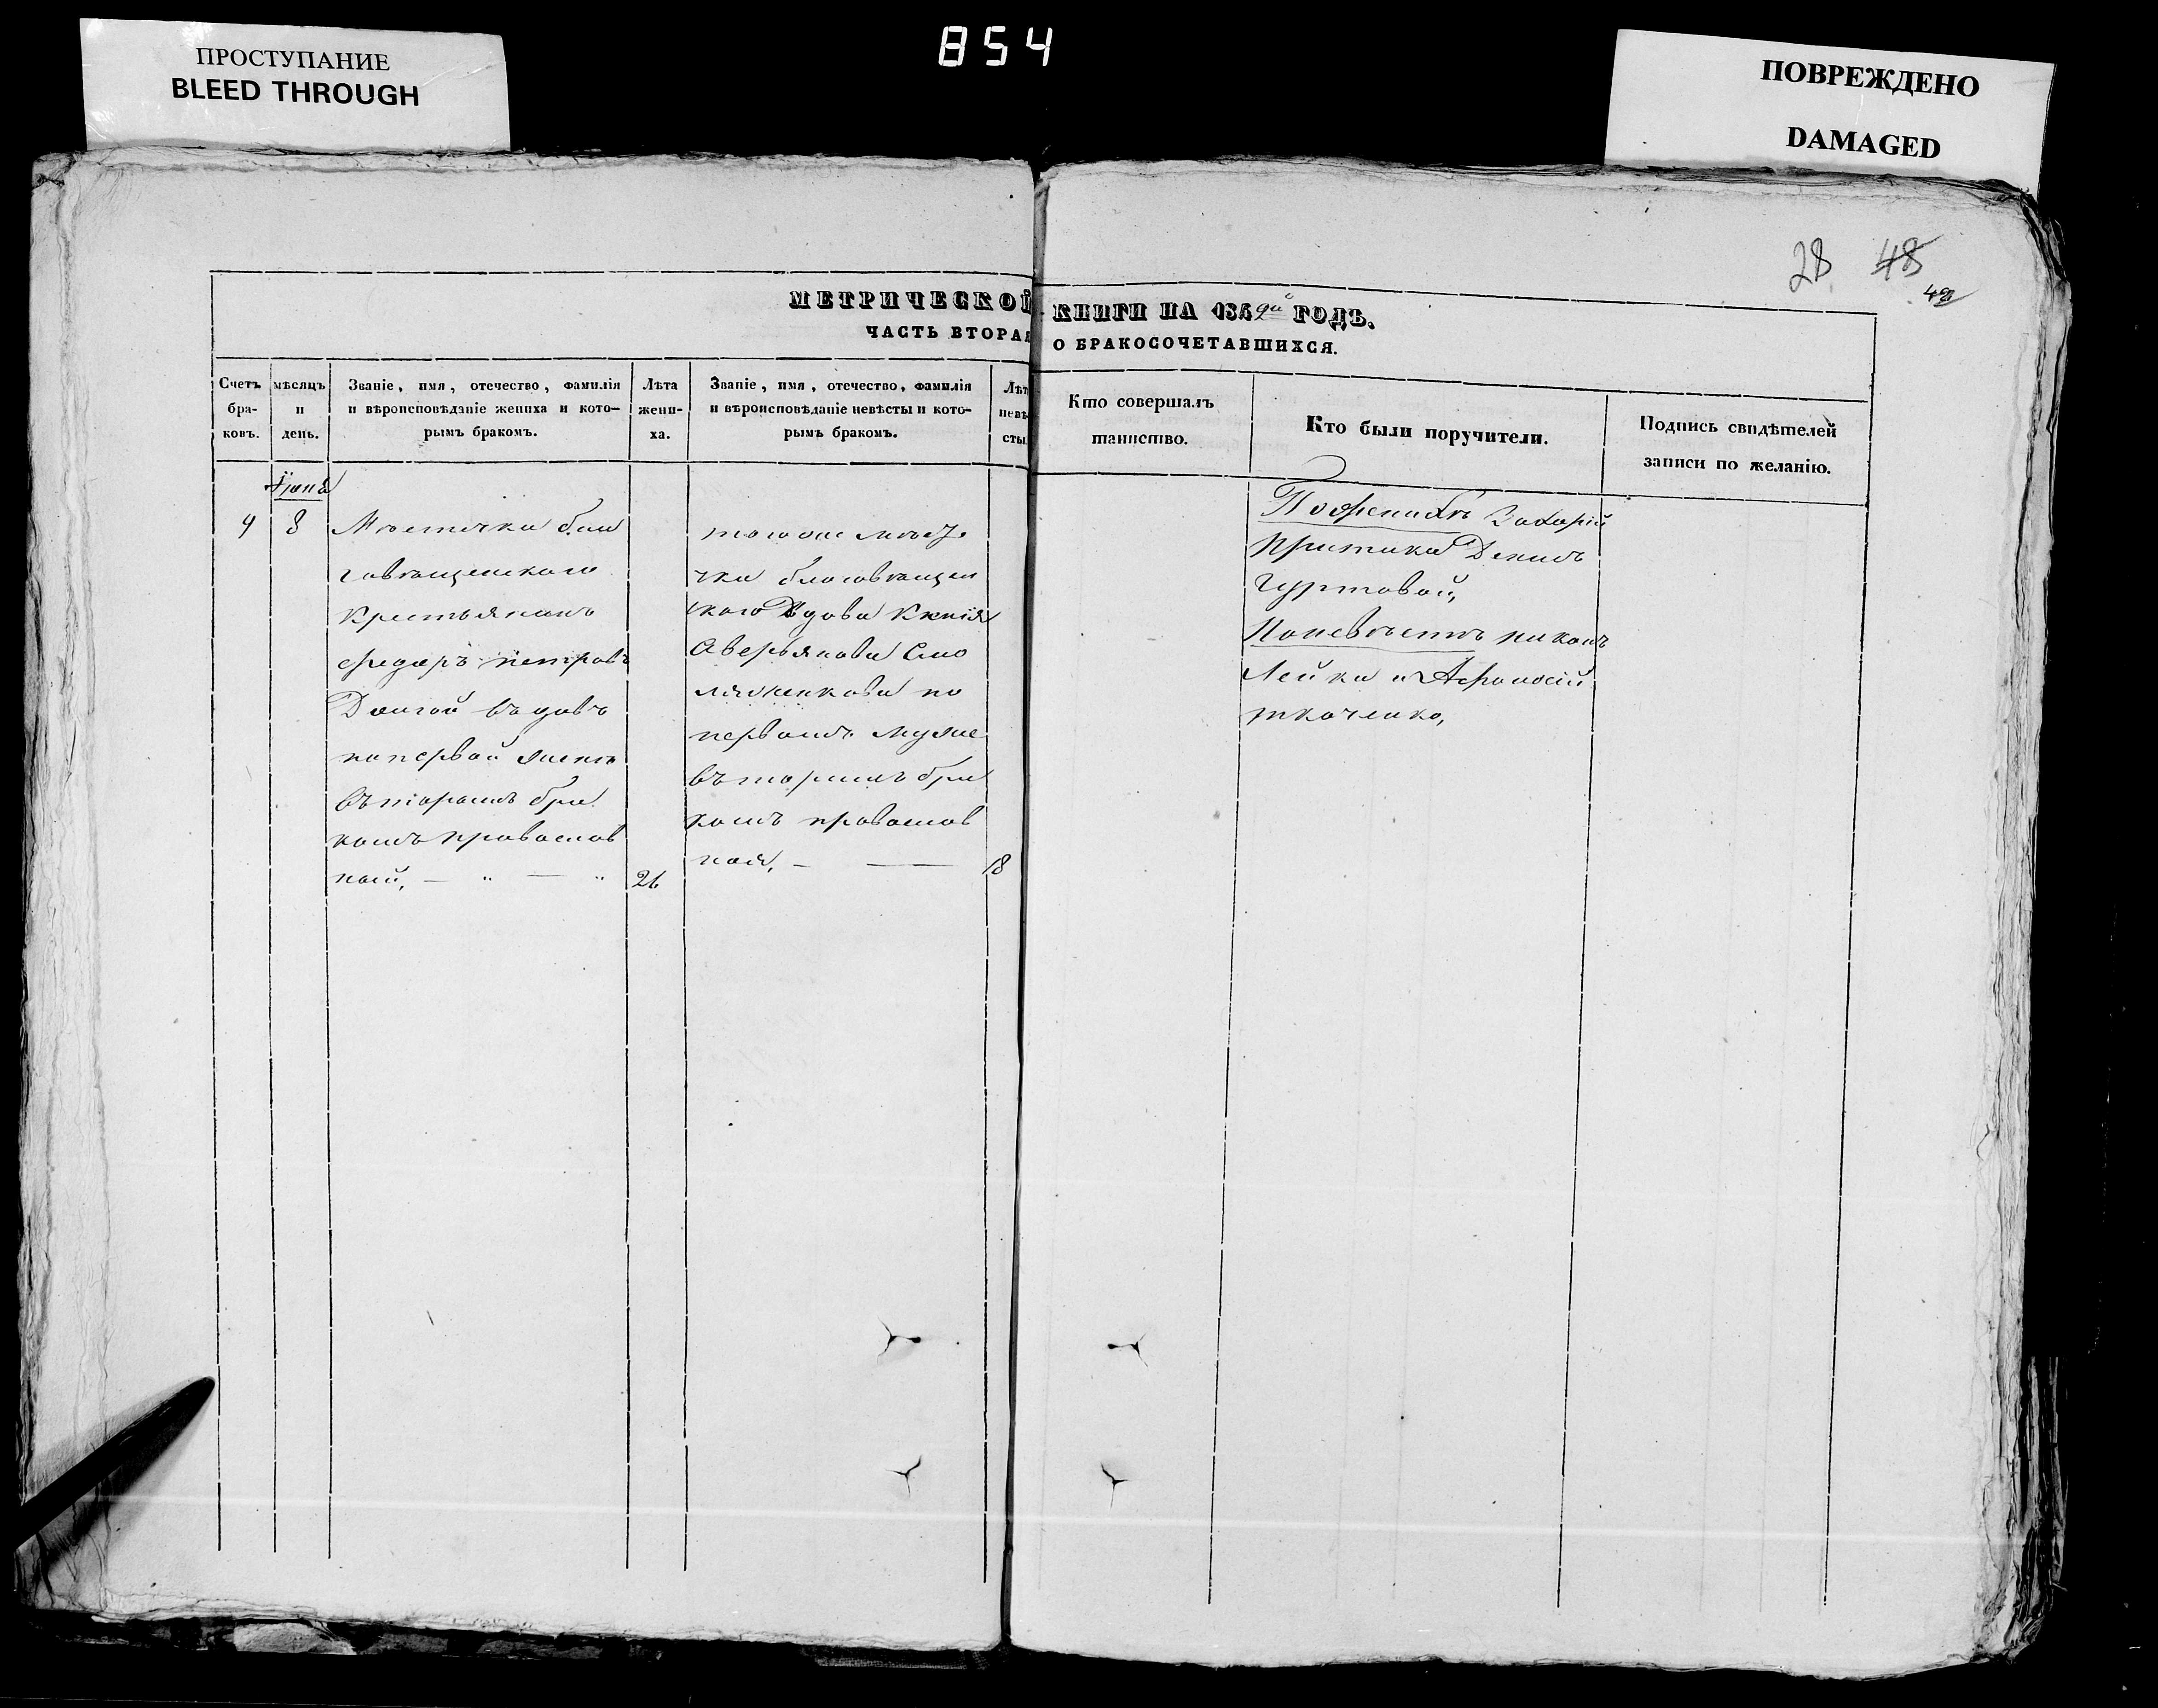 ПРОСТУПАНИЕ
BLEED THROUGH
854
ПОВРЕЖДЕНО
DAMAGED
28 48
48
МЕТРИЧЕСКОЙ КНИГИ НА 185 ГОДЪ.
ЧАСТЬ ВТОРАЯ О БРАКОСОЧЕТАВШИХСЯ.
Счетъ бра-ковъ.
мѣсяцъ и день.
Званіе, имя, отечество, фамилія
и вѣроисповѣданіе жениха и кото-
рымъ бракомъ.
Лѣта жени-ха.
Званіе, имя, отечество, фамилія
и вѣроисповѣданіе невѣсты и кото-
рымъ бракомъ.
Лѣт невѣ сты.
Кто совершалъ
таинство.
Кто были поручители.
Подпись свидѣтелей
записи по желанію.
Іюня
9 8
Мѣстечка бла
говѣщенскаго
Крестьянинъ
федоръ петровъ
Долгой вдовъ
по первой женѣ
вторымъ бра
комъ православ
ной, 26
тогоже мѣсте
чка благовѣщен
скаго Вдова
Аверьянова
по
первомъ муже
вторымъ бра
комъ православ
ная, 18
По женихѣ Захарій
Притика Денисъ
Гуртовой,
По невѣстѣ никонъ
Лейка и Афонасій
ткаченко,